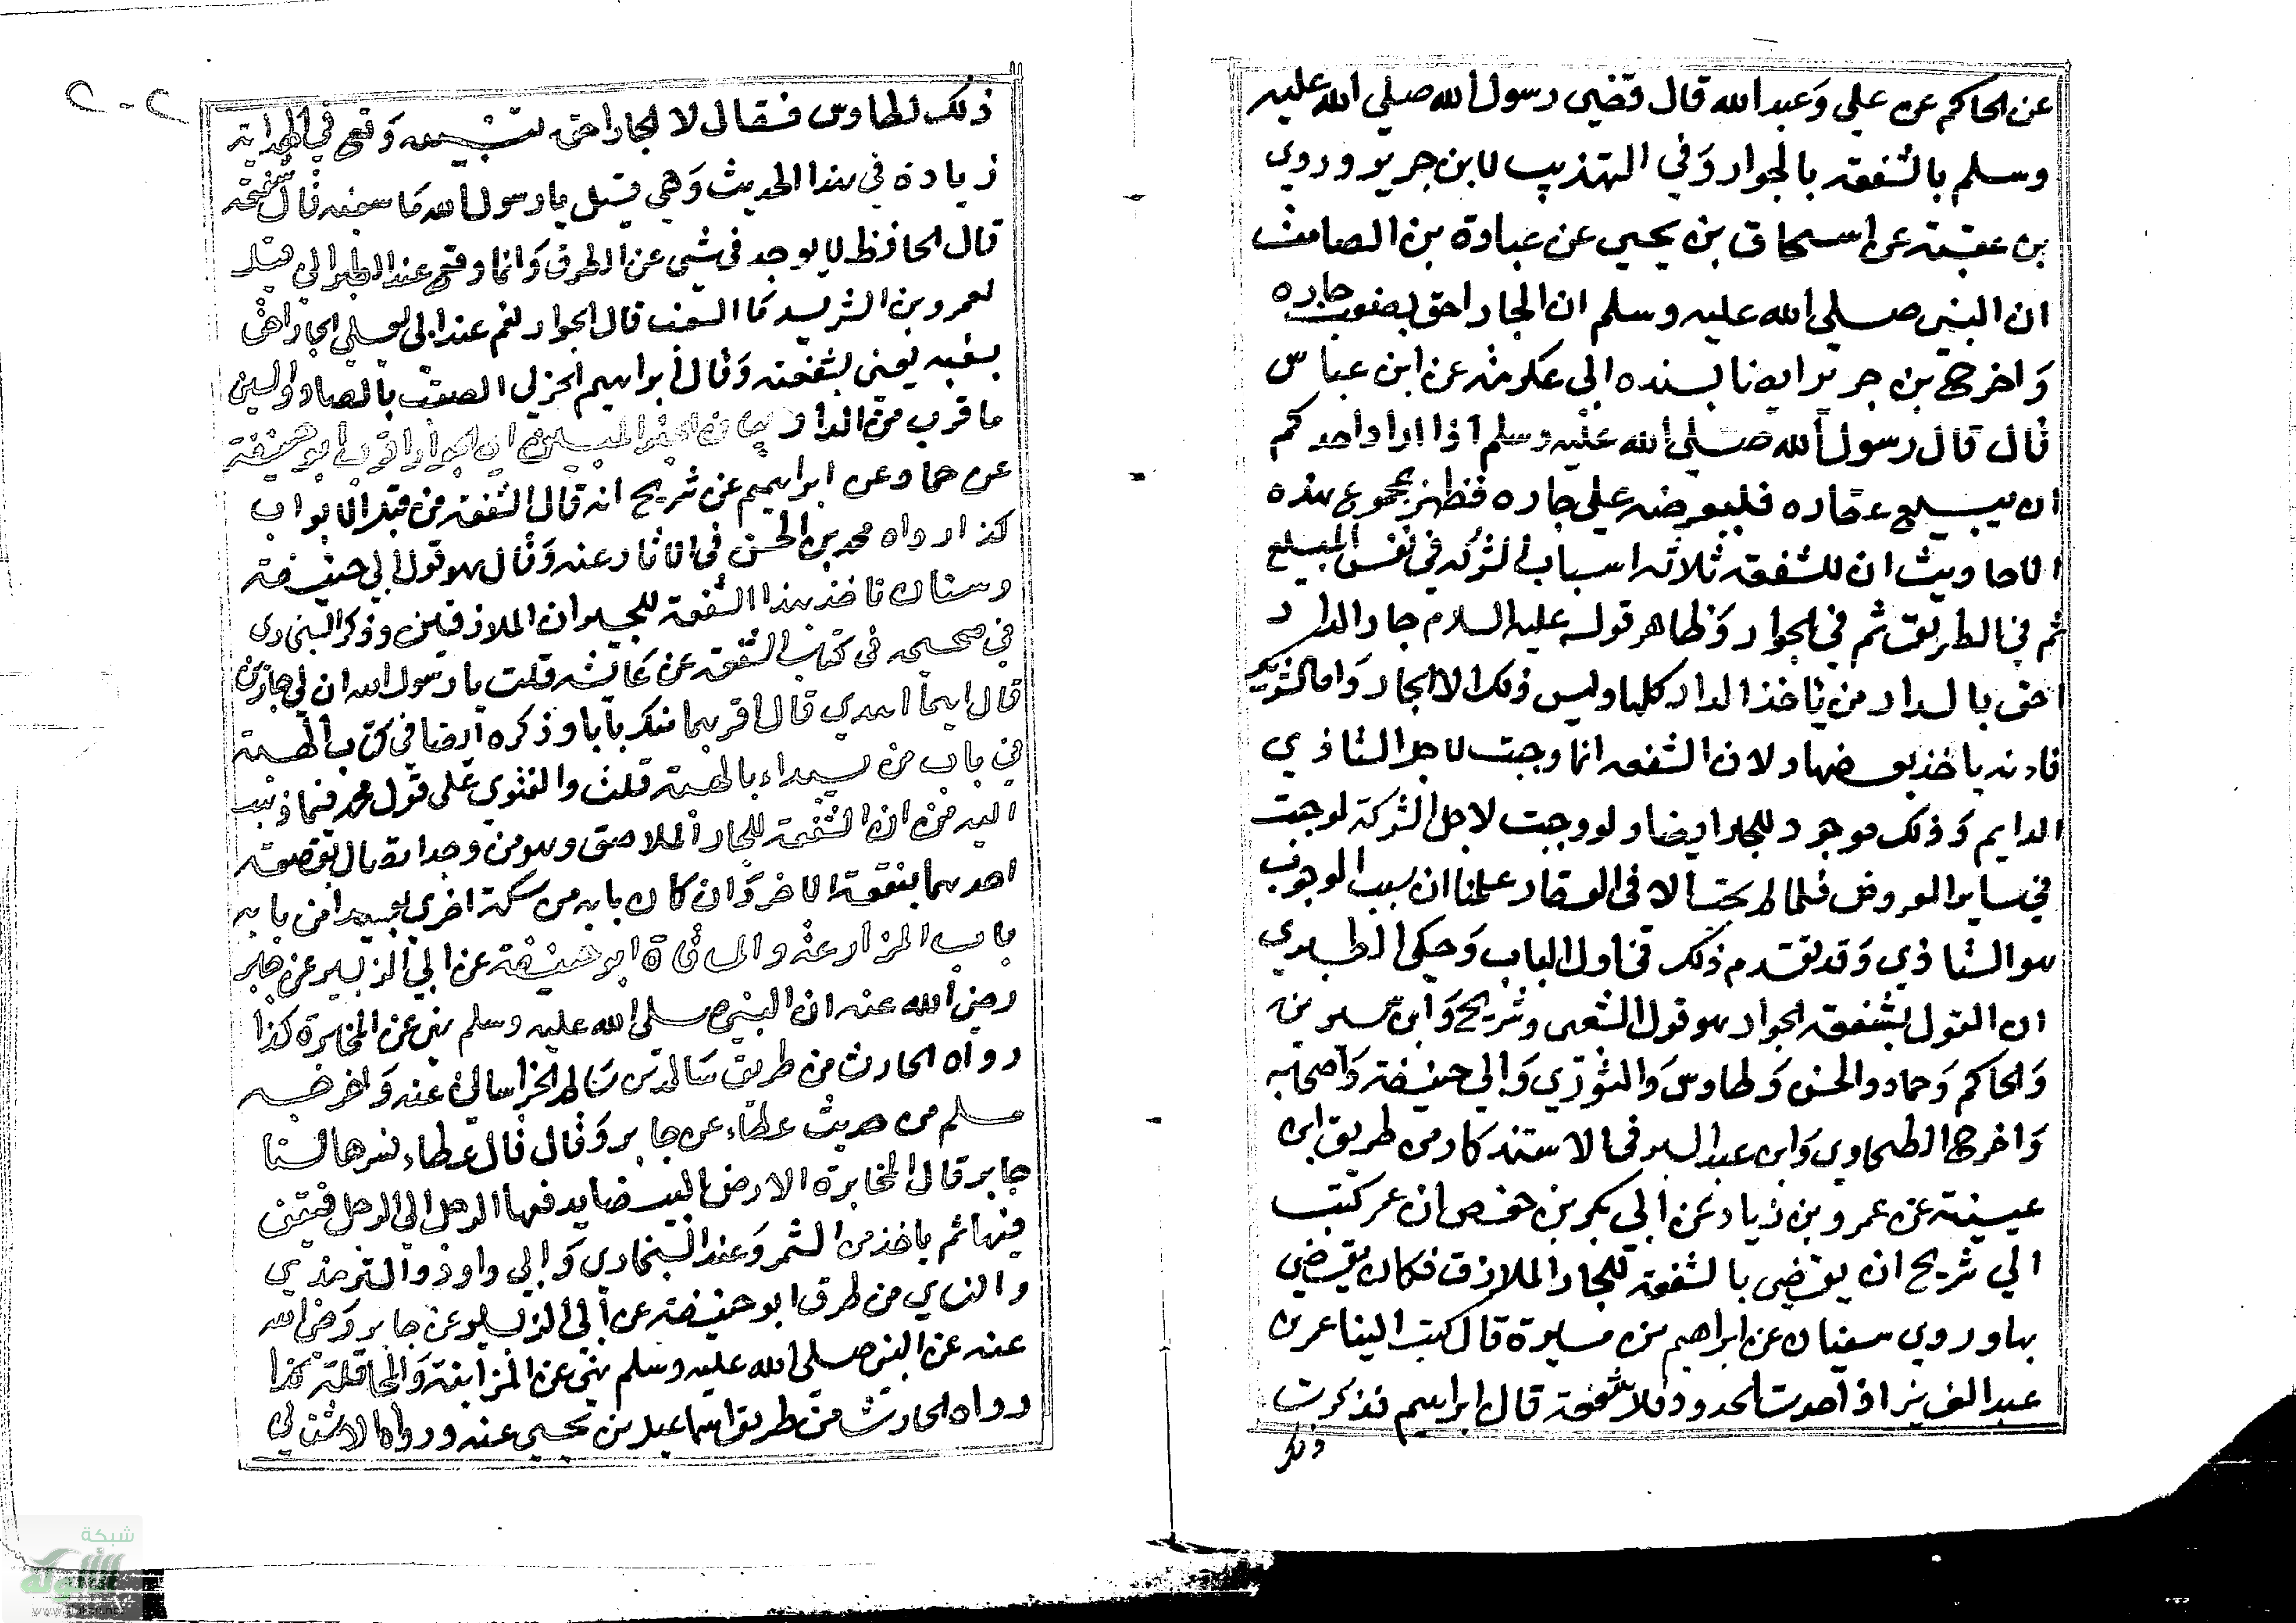 عن الحاكم عن علي وعبد الله قال قضي رسول الله صلي الله عليه
وسلم بالشفعة بالجوار وفي التهذيب لابن جرير وروي
بن عقبة عن اسحاق بن يحيي عن عبادة بن الصامت
ان النبي صلي الله عليه وسلم ان الجار احق بصقب جاره
واخرج بن جرير ايضا بسنده الي عكرمة عن ابن عباس
قال قال رسول الله صلي الله عليه وسلم اذا اراد احدكم
ان يبيع عقاره فليعرضه علي جاره فظهر بمجموع هذه
الاحاديث ان للشفعة ثلاثة اسباب الشركة في نفس المبيع
ثم في الطريق ثم في الجوار وظاهر قوله عليه السلام جار الدار
احق بالدار من ياخذ الدار كلها وليس ذلك الا الجار واما الشريك
فانه ياخذ بعضها ولان الشفعه انما وجبت لاجل التاذي
الدايم وذلك موجود للجار ايضا ولو وجبت لاجل الشركة لوجبت
في ساير العروض فلما لم يجب الا في العقار علمنا ان سبب الوجوب
هو التاذي وقد تقدم ذلك في اول الباب وحكي الطبري
ان القول بشفعة الجوار هو قول الشعبي وشريح وابن سيرين
والحاكم وحماد والحسن وطاوس والثوري وابي حنيفة واصحابه
واخرج الطحاوي وابن عبد البر في الاستذكار من طريق ابن
عيينة عن عمرو بن زياد عن ابي بكر بن حفص ان عمر كتب
الي شريح ان يقضي بالشفعة للجار الملازق فكان يقضي
بها وروي سفيان عن ابراهيم بن ميسرة قال كتب الينا عمر بن
عبد العزيز اذا حدت الحدود فلا شفعة قال ابراهيم فذكرت
ذلك
٢٠٢
ذلك لطاوس فقال لا الجار احق تنبيه وقع في الهداية
زيادة في هذا الحديث وهي قيل يا رسول الله ما سقبه قال شفعته
قال الحافظ لا يوجد في شي من الطرق وانما وقع عند الطبراني قيل
لعمرو بن الشريد ما السقب قال الجوار نعم عند ابي يعلي الجار احق
بسقبه يعني بشفعته وقال ابراهيم الحربي الصقب بالصاد والسين
ما قرب من الدار بيان الخبر المبين ان الجوار اقرب ابو حنيفة
عن حماد عن ابراهيم عن شريح انه قال الشفعة من قبل الابواب
كذا رواه محمد بن الحسن في الاثار عنه وقال هو قول ابي حنيفة
ولسنا ناخذ بهذا الشفعة للجيران الملازقين وذكر البخاري
في صحيحه في كتاب الشفعة عن عائشه قلت يا رسول الله ان لي جارين
قال ايهما اهدي قال اقربهما منك بابا وذكره ايضا في كتاب الهبة
في باب من يبداء بالهبة قلت والفتوي علي قول محمد فيما ذهب
اليه من ان الشفعة للجار الملاصق وهو من وجد اتصال بقعة
احدهما ببقعة الاخر وان كان بابه من سكة اخري بعيدا من بابه
باب المزارعة والمساقاة ابو حنيفة عن ابي الزبير عن جابر
رضي الله عنه ان النبي صلي الله عليه وسلم نهي عن المخابرة كذا
رواه الحارث من طريق سالم بن سالم الخراساني عنه واخرجه
مسلم من حديث عطاء عن جابر وقال قال عطاء فسرها لنا
جابر قال المخابرة الارض البيضا يدفعها الرجل الي الرجل فينفق
فيها ثم ياخذ من الثمر وعند البخاري وابي داود والترمذي
والنساي من طرق ابو حنيفة عن ابي الزبير عن جابر رضي الله
عنه عن النبي صلي الله عليه وسلم نهي عن المزابنة والمحاقلة كذا
رواه الحارث من طريق اسماعيل بن يحيي عنه ورواه الاشناني
شبكة
الألوكة